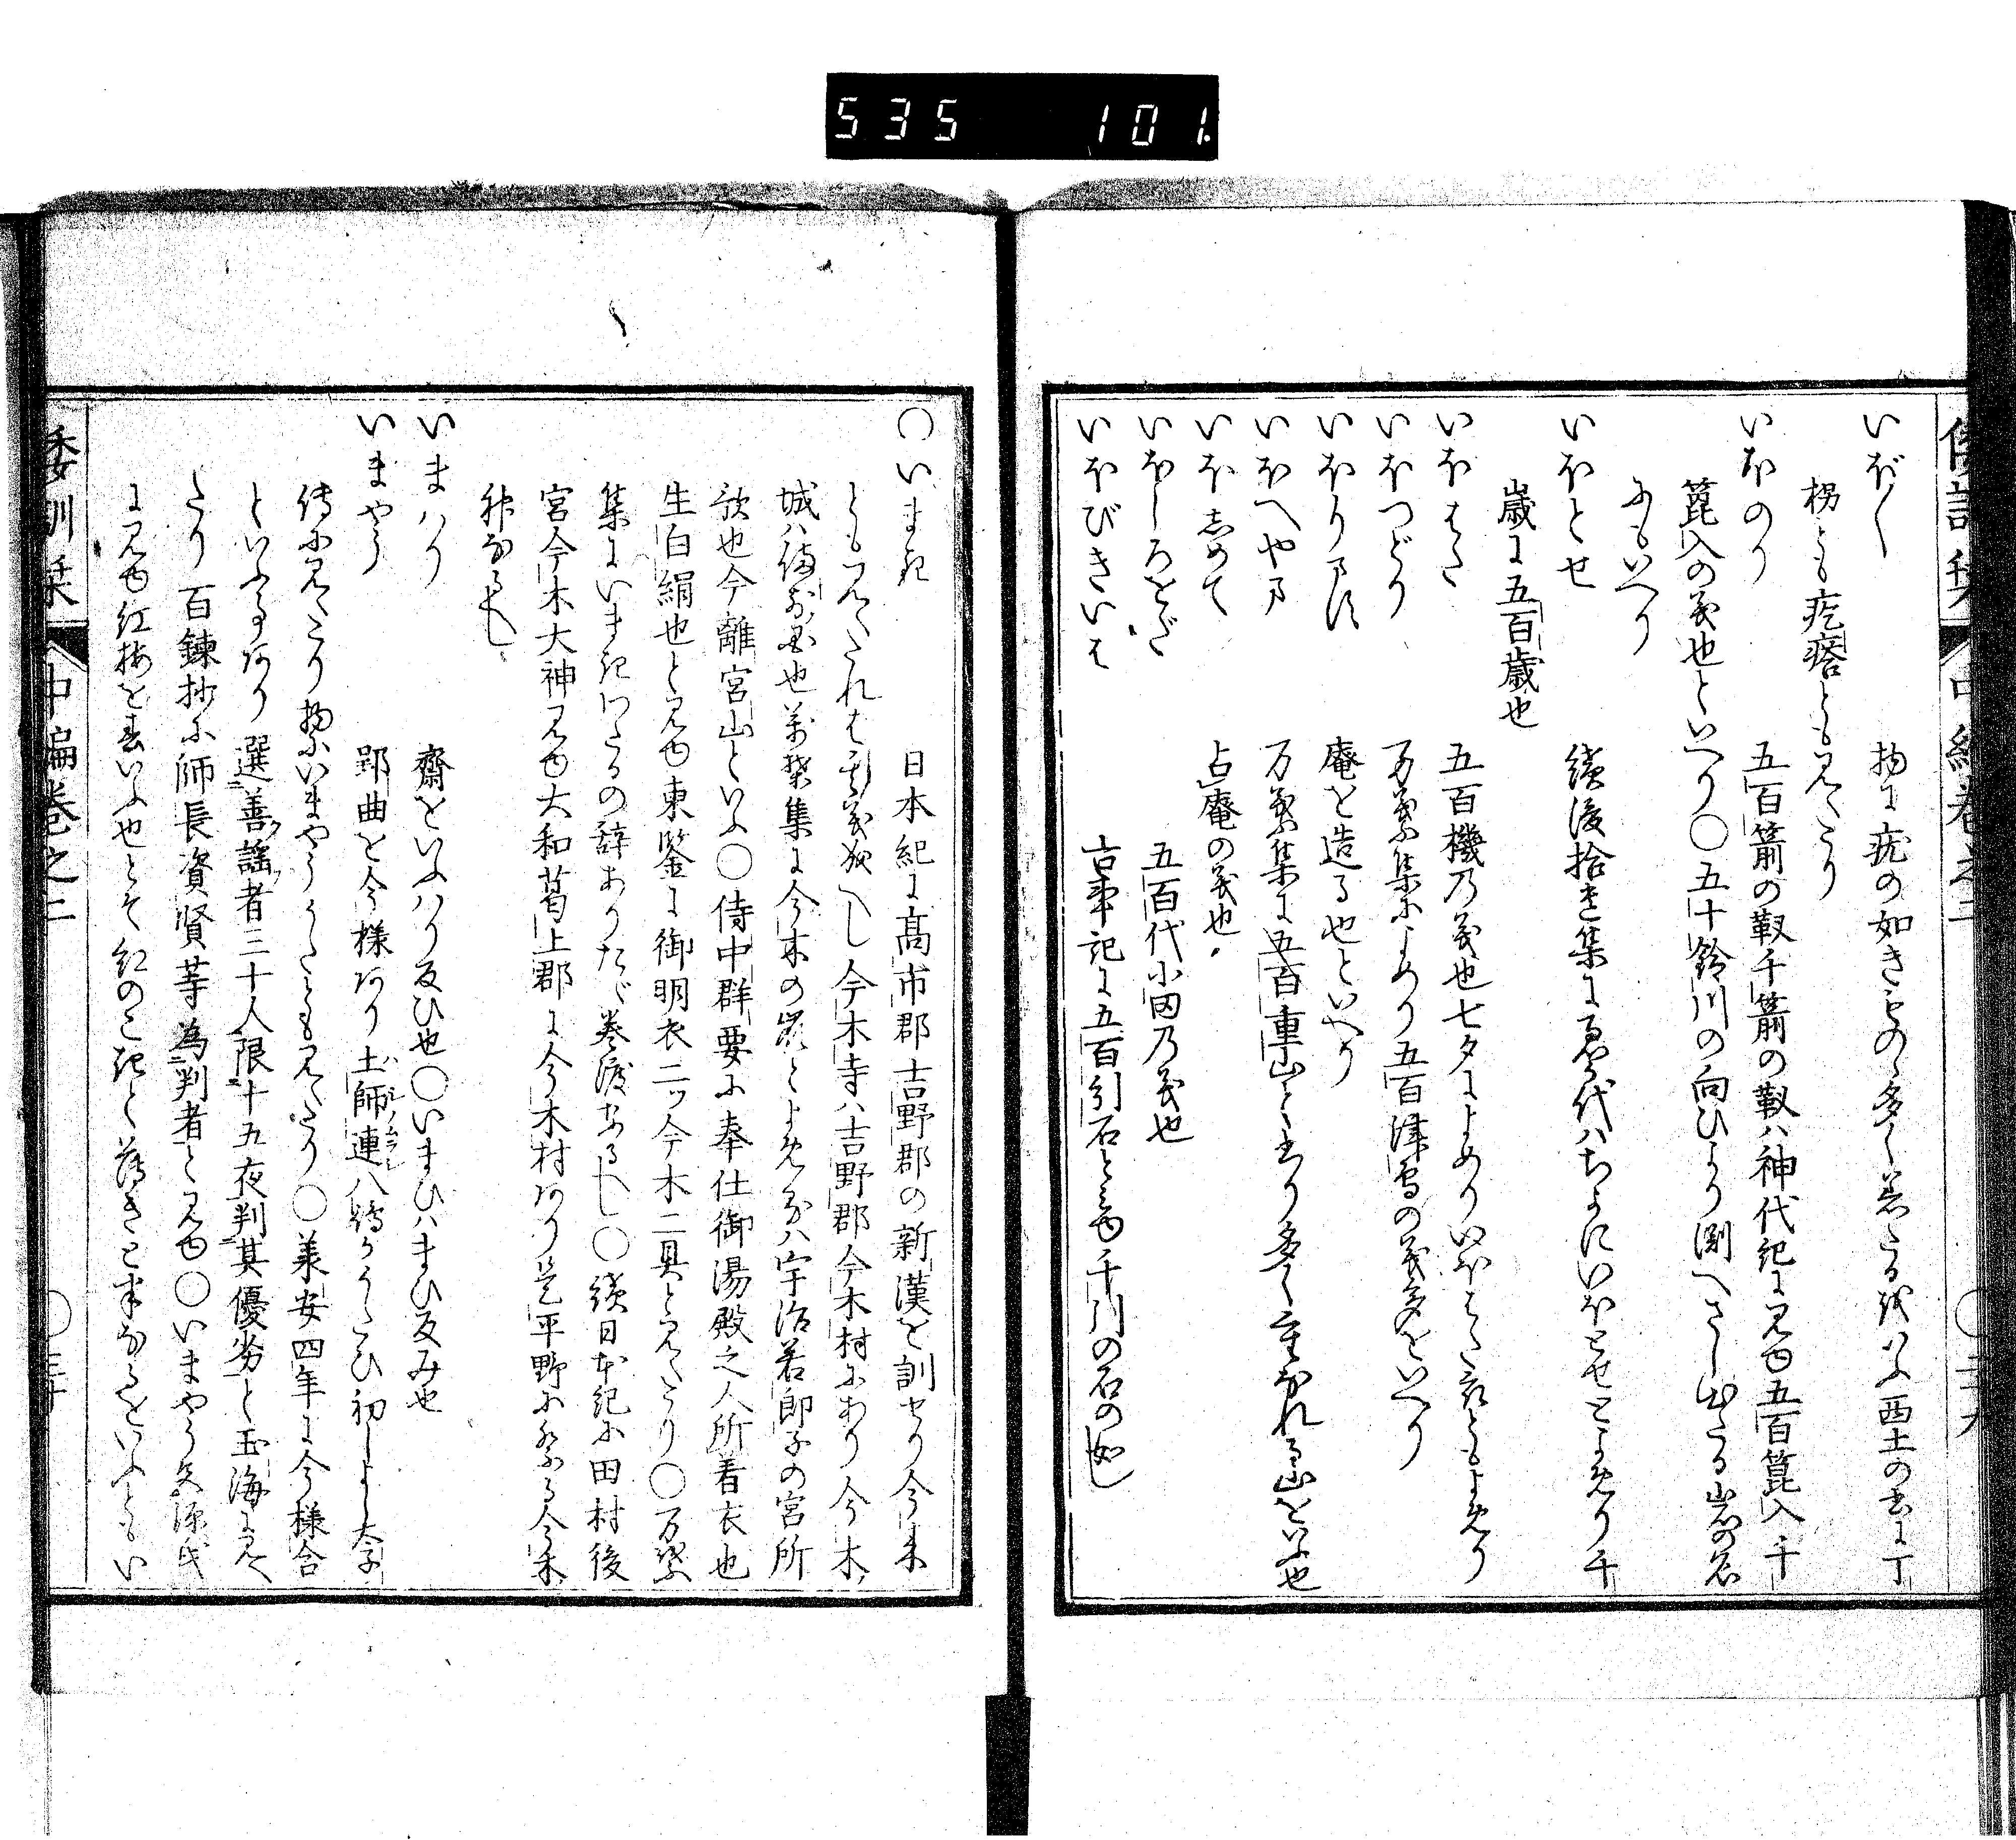 535 101
いぼ〳〵 物に疣の如きものゝ多く着たるをいふ西土の書に丁
拐とも疙瘩とも見えたり
いほのり 五百箭の靫千箭の靫ハ神代紀に見ゆ五百箆入千
箆入の義也といへり〇五十鈴川の向ひより淵へさし出たる岩の名
にもいへり
いほとせ 続後拾遺集に君が代ハちよにいほとせとよめり千
歳に五百歳也
いほはた 五百機乃義也七夕によめりいほはた衣ともよめり
いほつどり 万葉集によめり五百津鳥の義多をいへり
いほります 庵を造る也といへり
いほへやま 万葉集に五百重山と書り多く重なれる山をいふ也
いほしめて 占庵の義也
いほしろをだ 五百代小田乃義也
いほびきいは 古事記に五百引石と見ゆ千引の石の如し
〇いまき 日本紀に高市郡吉野郡の新漢を訓せり今来
とも見えたれは義祇へし今木寺ハ吉野郡今木村にあり今木
城ハ備前国也万葉集に今木の嶺とよめるハ宇治若郎子の宮所
歌也今離宮山といふ〇侍中群要に奉仕御湯殿之人所着衣也
生白絹也と見ゆ東鑑に御明衣二ツ今木二具と見えたり〇万葉
集にいまきわたるの辞ありたゞ巻渡なるへし〇続日本紀に田村後
宮今木大神見ゆ大和葛上郡に今木村あり是平野に祭る今木
神なるへし
いまハり 齋をいふハり反ひ也〇いまひハまひ反み也
いまやう 郢曲を今様あり土師連八嶋がうたひ初しよし太子
傳に見えたり物にいまやううたとも見えたり〇承安四年に今様合
といふ事あり選善謡者三十人限十五夜判其優劣と玉海に見え
たり百錬抄に師長資賢等為判者と見ゆ〇いまやう色源氏
に見ゆ紅梅をいふ也とそ紅のこきと薄きと半なるをいふともい
倭訓栞 中編巻之二